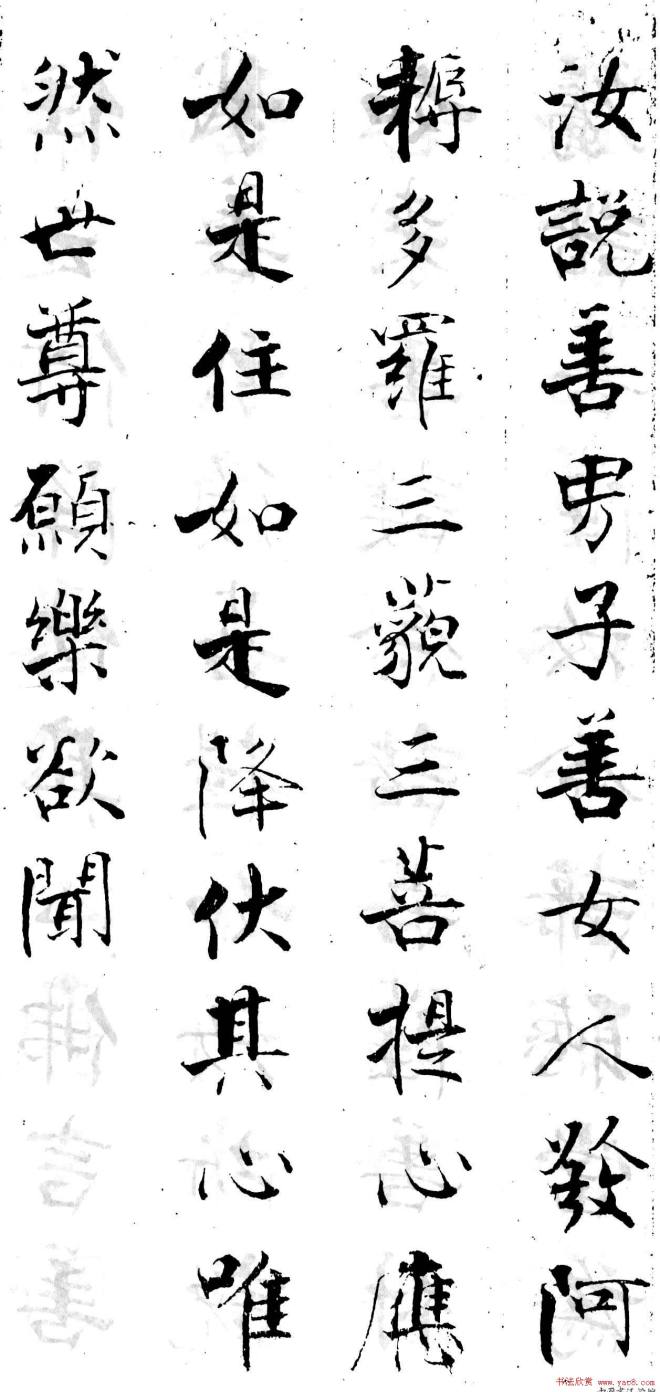 汝說善男子善女人發阿
耨多羅三藐三菩提心應
如是住如是降伏其心唯
然世尊願樂欲聞
书法欣赏 www.yac8.com